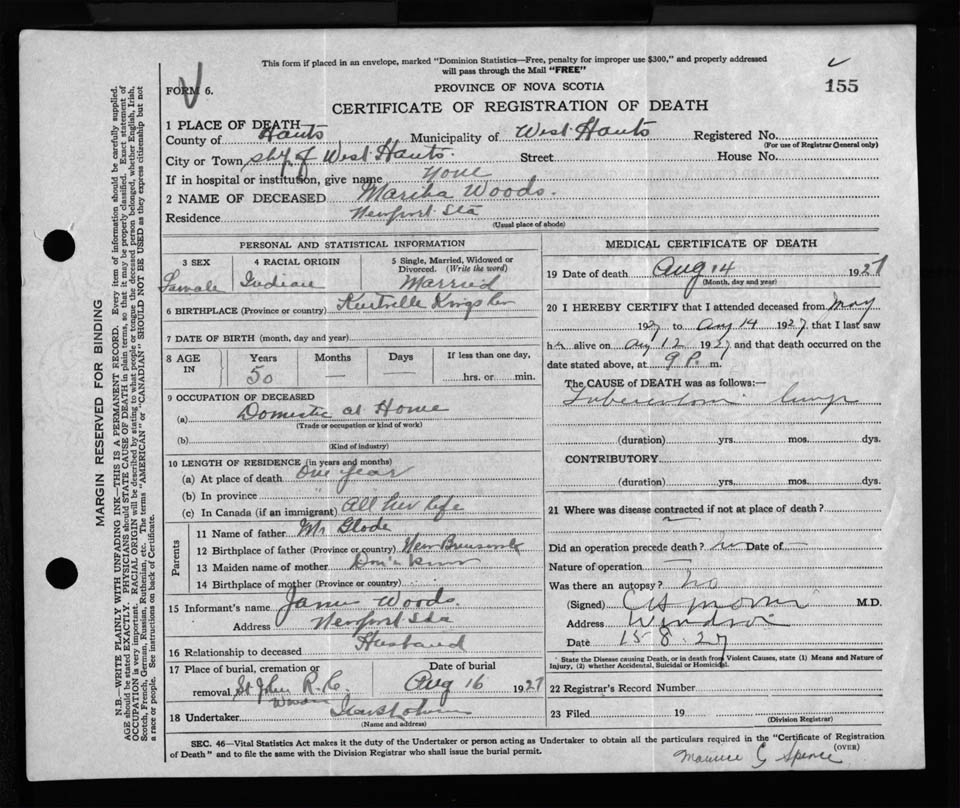 This form if placed in an envelope, marked "Dominion Statistics—Free, penalty for improper use $300," and properly addressed
will pass through the Mail "FREE"
FORM 6.
PROVINCE OF NOVA SCOTIA
155
CERTIFICATE OF REGISTRATION OF DEATH
1 PLACE OF DEATH—
County of Hants Municipality of West Hants Registered No.
(For use of Registrar General only)
City or Town of West Hants. Street House No.
If in hospital or institution, give name None
2 NAME OF DECEASED Martha Woods.
Residence Newport Sta
(Usual place of abode)
PERSONAL AND STATISTICAL INFORMATION
3 SEX
Female
4 RACIAL ORIGIN
Indian
5 Single, Married, Widowed or
Divorced. (Write the word)
Married
6 BIRTHPLACE (Province or country) Kentville Kings Co
7 DATE OF BIRTH (month, day and year)
8 AGE IN
Years Months Days If less than one day,
50 — — hrs. or min.
9 OCCUPATION OF DECEASED
(a) Domestic at Home
(Trade or occupation or kind of work)
(b)
(Kind of industry)
10 LENGTH OF RESIDENCE (in years and months)
(a) At place of death one year
(b) In province " "
(c) In Canada (if an immigrant) All her life
Parents
11 Name of father Mr Glode
12 Birthplace of father (Province or country) New Brunswick
13 Maiden name of mother Don't know
14 Birthplace of mother (Province or country)
15 Informant's name James Woods.
Address Newport Sta
16 Relationship to deceased Husband
17 Place of burial, cremation or Date of burial
removal, St John R. C. Aug 16 1927
Windsor
18 Undertaker
(Name and address)
MEDICAL CERTIFICATE OF DEATH
19 Date of death Aug 14 1927
(Month, day and year)
20 I HEREBY CERTIFY that I attended deceased from May
1927 to Aug 14 1927, that I last saw
her alive on Aug 12 1927 and that death occurred on
date stated above, at 9 P. m.
The CAUSE of DEATH was as follows:—
Tuberculosis lungs
(duration) yrs. mos. dys.
CONTRIBUTORY
(duration) yrs. mos. dys.
21 Where was disease contracted if not at place of death?
Did an operation precede death? no Date of —
Nature of operation —
Was there an autopsy? no
(Signed) M.D.
Address Windsor
Date 15.8.27
State the Disease causing Death, or in death from Violent Causes, state (1) Means and Nature of
Injury, (2) whether Accidental, Suicidal or Homicidal.
22 Registrar's Record Number
23 Filed 19
(Division Registrar)
SEC. 46—Vital Statistics Act makes it the duty of the Undertaker or person acting as Undertaker to obtain all the particulars required in the "Certificate of Registration
of Death" and to file the same with the Division Registrar who shall issue the burial permit.
(OVER)
Maurice G Spence
MARGIN RESERVED FOR BINDING
N.B.—WRITE PLAINLY WITH UNFADING INK—THIS IS A PERMANENT RECORD. Every item of information should be carefully supplied.
AGE should be stated EXACTLY. PHYSICIANS should STATE CAUSE OF DEATH in plain terms, so that it may be properly classified. Exact statement of
OCCUPATION is very important. RACIAL ORIGIN will be described by stating to what people or tongue the deceased person belonged, whether English, Irish,
Scotch, French, German, Russian, Ruthenian, etc. The terms "AMERICAN" or "CANADIAN" SHOULD NOT BE USED as they express citizenship but not
a race or people. See instructions on back of Certificate.